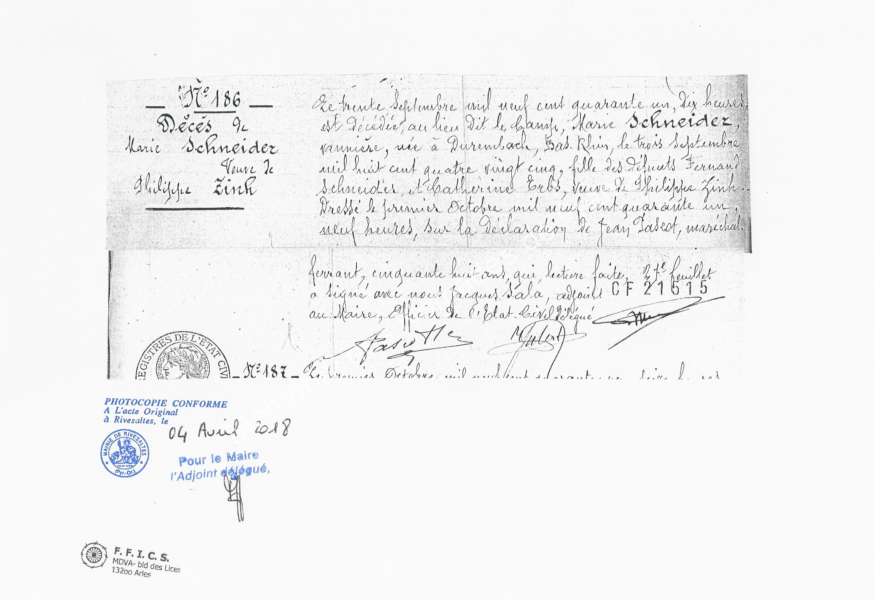 — Nº 186 —
Décès de
Marie Schneider
Veuve de
Philippe Zinh
Le trente Septembre mil neuf cent quarante un, dix heures,
est décédée, au lieu dit le Camp, Marie Schneider,
vannière, née à Durembach, Bas-Rhin, le trois Septembre
mil huit cent quatre vingt cinq, fille des défunts Fernand
Schneider, et Catherine Erbs, veuve de Philippe Zinh.
Dressé le premier Octobre mil neuf cent quarante un
neuf heures, sur la déclaration de Jean Pascot, maréchal
ferrant, cinquante huit ans, qui, lecture faite, 27e feuillet
a signé avec nous Jacques Sala, adjoint CF 21515
au Maire, Officier de l'Etat-Civil délégué
REGISTRES DE L'ÉTAT CIVIL
— Nº 187 — Le premier Octobre mil neuf cent quarante un
PHOTOCOPIE CONFORME
A L'acte Original
à Rivesaltes, le
04 Avril 2018
MAIRIE DE RIVESALTES
(Pyr.-Or.)
Pour le Maire
l'Adjoint délégué,
F. F. I. C. S.
MDVA- bld des Lices
13200 Arles